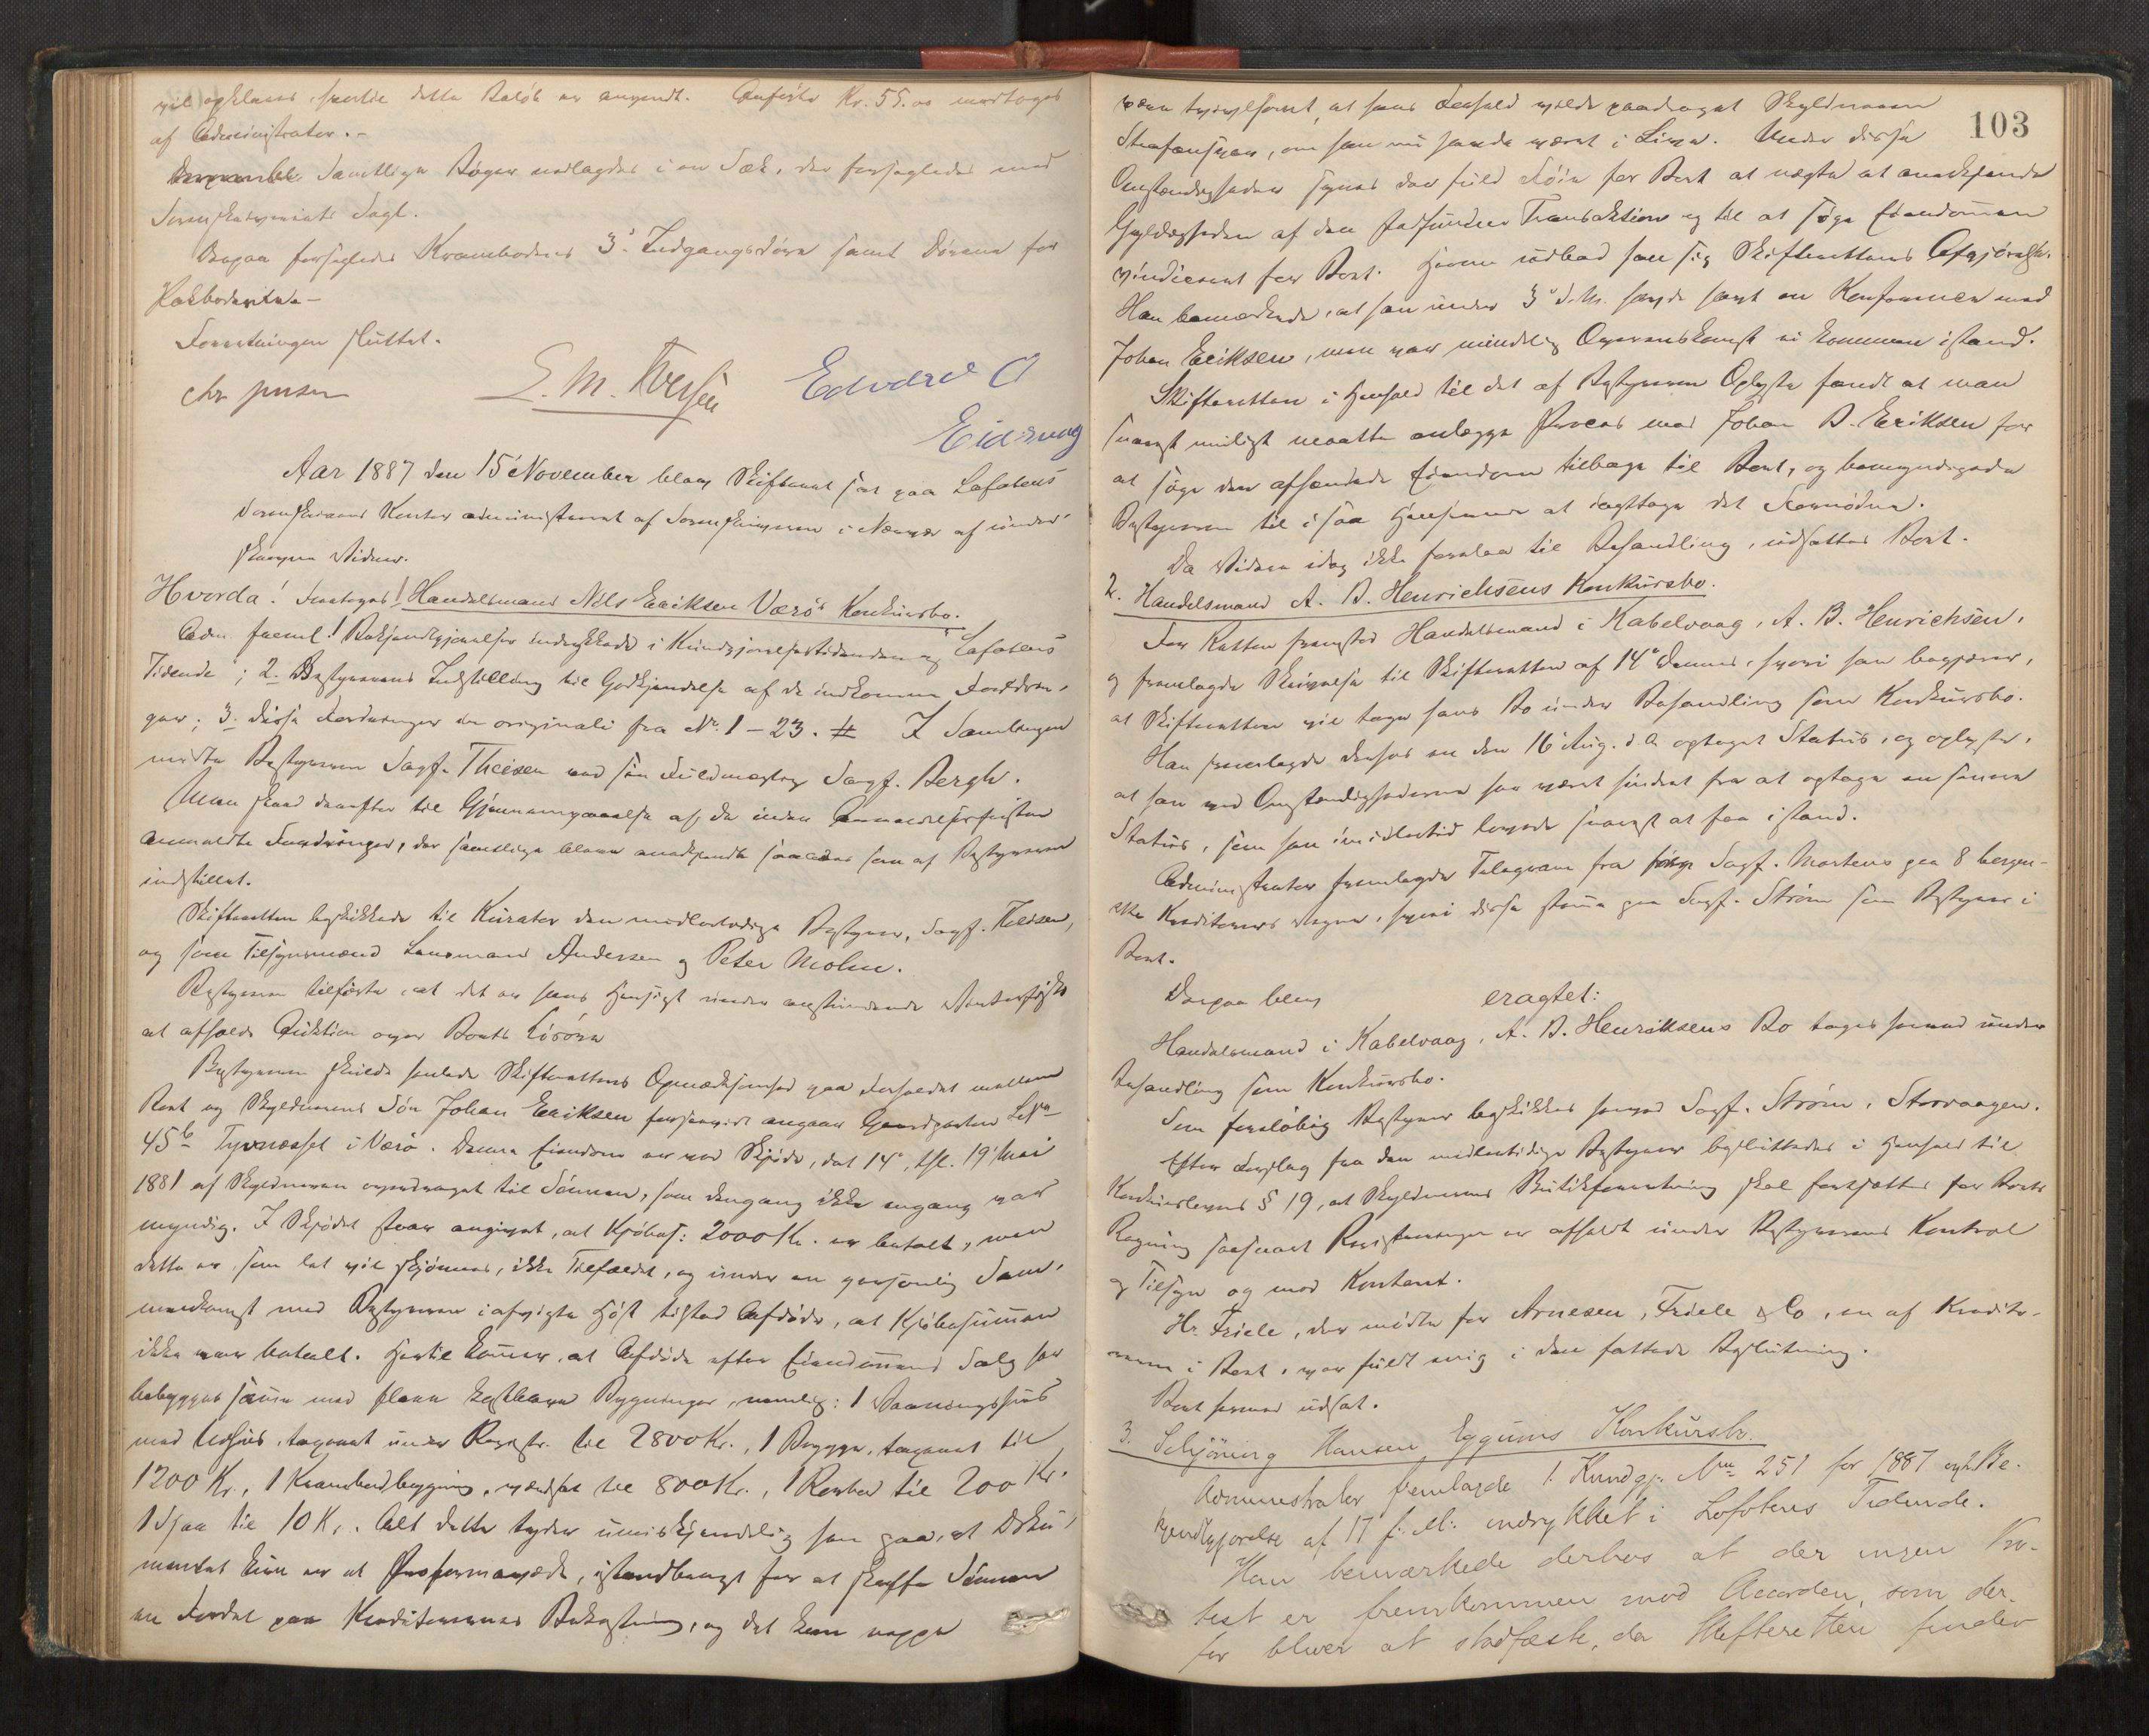 vil opklares, hvortil dette Beløb er anvendt. Anførte Kr. 55.00 modtoges
af Administrator.-
Samtlige Bøger nedlagdes i en Sæk, der forsegledes med
Sorenskriverens Segl.
Derpaa forsegledes Krambodens 3de Indgangsdøre samt Dørene for
Forretningen sluttet.
Chr Jensen E. M. Iversen Edvard O
Eidsvaag
Aar 1887 den 15 November blev Skifteret sat paa Lofotens
Sorenskriveris Kontor administreret af Sorenskriveren i Nærvær af under-
skrevne Vidner.
Hvorda! Foretoges 1. Handelsmand Nils Eriksen Værø's Konkursbo.
Adm freml. 1. Bekjendtgjørelser indrykkede i Kundgjørelsestidenden og Lofotens
Tidende; 2. Bestyrerens Indstilling til Godkjendelse af de indkomne Fordrin-
ger; 3. disse Fordringer in originali fra No 1 - 23. # I Samlingen
mødte Bestyreren Sagf. Theisen ved sin Fuldmægtig Sagf. Bergh.
Man skred derefter til Gjennemgaaelse af de inden Anmeldelsesfristen
anmeldte Fordringer, der samtlige bleve anerkjendte saaledes som af Bestyreren
indstillet.
Skifteretten beskikkede til Kurator den midlertidige Bestyrer, Sagf. Theisen,
og som Tilsynsmænd Lensmand Andersen og Peter Molne.
Bestyreren tilførte, at det er hans Hensigt under anstundende Vinterfiske
at afholde Auktion over Boets Løsøre
Bestyreren skulde henlede Skifterettens Opmærksomhed paa Forholdet mellem
Boet og Skyldnerens Søn Johan Eriksen forsaavidt angaar Gaardparten LNo
45b Tyvnæsset i Værø. Denne Eiendom er ved Skjøde, dat 14de, thl. 19 Mai
1881 af Skyldneren overdraget til Sønnen, som dengang ikke engang var
myndig. I Skjødet staar angivet, at Kjøbes: 2000 Kr. er betalt, men
dette er, som let vil skjønnes, ikke Tilfældet, og under en personlig Sam-
menkomst med Bestyreren i afvigte Høst tilstod Afdøde, at Kjøbesummen
ikke var betalt. Hertil kommer, at Afdøde efter Eiendommens Salg har
bebygget samme med flere kostbare Bygninger, nemlig: 1 Vaaningshus
med Udhus, taxeret under Registr. til 2800 Kr., 1 Brygge, taxeret til
1200 Kr., 1 Krambodbygning, værdsat til 800 Kr., 1 Rorbod til 200 Kr.
1 Sjaa til 10 Kr. Alt dette tyder umiskjendelig hen paa, at Doku-
mentet kun er et Proformaværk, istandbragt for at skaffe Sønnen
en Fordel paa Kreditorernes Bekostning, og det kan neppe
103
være tvivlsomt, at hans Forhold vilde paadraget Skyldneren
Strafansvar, om han nu havde været i Live. Under disse
Omstændigheder synes der fuld Føie for Boet at nægte at anerkjende
Gyldigheden af den stedfundne Transaktion og til at søge Eiendommen
vindiceret for Boet. Herom udbad han sig Skifterettens Afgjørelse.
Han bemærkede, at han under 3de d. M. havde havt en Konference med
Johan Eriksen, men var mindelig Overenskomst ei kommen istand.
Skifteretten i Henhold til det af Bestyreren Oplyste fandt at man
snarest muligt maatte anlægge Proces mod Johan B. Eriksen for
at søge den afhændede Eiendom tilbage til Boet, og bemyndigede
Bestyreren til i saa Henseende at iagttage det Fornødne.
Da Videre idag ikke forelaa til Behandling, udsattes Boet.
2. Handelsmand A. B. Henrichsens Konkursbo.
For Retten fremstod Handelsmand i Kabelvaag, A. B. Henrichsen,
og fremlagde Skrivelse til Skifteretten af 14de dennes, hvori han begjærer,
at Skifteretten vil tage hans Bo under Behandling som Konkursbo.
Han fremlagde derhos en den 16 Aug. d. A. optaget Status, og oplyste,
at han ved Omstændighederne har været hindret fra at optage en senere
Status, som han imidlertid lovede snarest at faa istand.
Administrator fremlagde Telegram fra Sagf. Martens paa 8 bergen-
ske Kreditorers Vegne, hvori disse stemme paa Sagf. Strøm som Bestyrer i
Boet.
Derpaa blev eragtet:
Handelsmand i Kabelvaag, A. B. Henriksens Bo tages herved under
Behandling som Konkursbo.
Som foreløbig Bestyrer beskikkes herved Sagf. Strøm, Storvaagen.
Efter Forslag fra den midlertidige Bestyrer besluttedes i Henhold til
Konkurslovens § 19, at Skyldnerens Butikforretning skal fortsættes for Boets
Regning saasnart Registreringen er afholdt under Bestyrerens Kontrol
og Tilsyn og mod Kontant.
Hr. Friele, der mødte for Arnesen, Friele & Co, en af Kredito-
rerne i Boet, var fuldt enig i den fattede Beslutning.
Boet herved udsat.
3. Schjøning Hansen Eggums Konkursbo.
Administrator fremlagde 1. Kundgj. No 251 for 1887 og 2. Be-
kjendtgjørelse af 17 f. M. indrykket i Lofotens Tidende.
Han bemærkede derhos at der ingen Pro-
test er fremkommen mod Accorden, som der-
for bliver at stadfæste, da Skifteretten finder